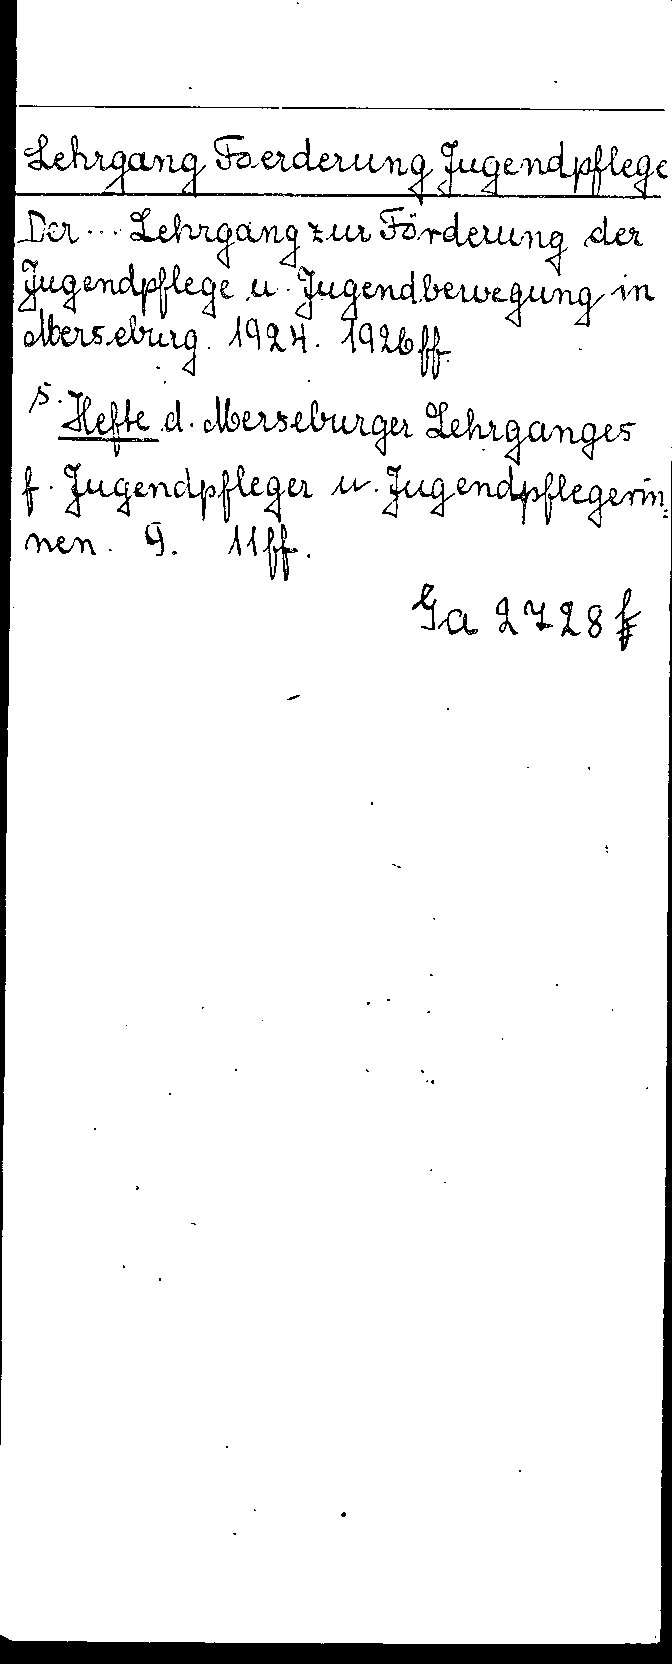 Lehrgang Foerderung Jugendpflege
Der... Lehrgang zur Förderung der
Jugendpflege u. Jugendbewegung in
Merseburg. 1924. 1926ff.
s. Hefte d. Merseburger Lehrganges
f. Jugendpfleger u. Jugendpflegerin=
nen. 9. 11ff.
Ga 2728